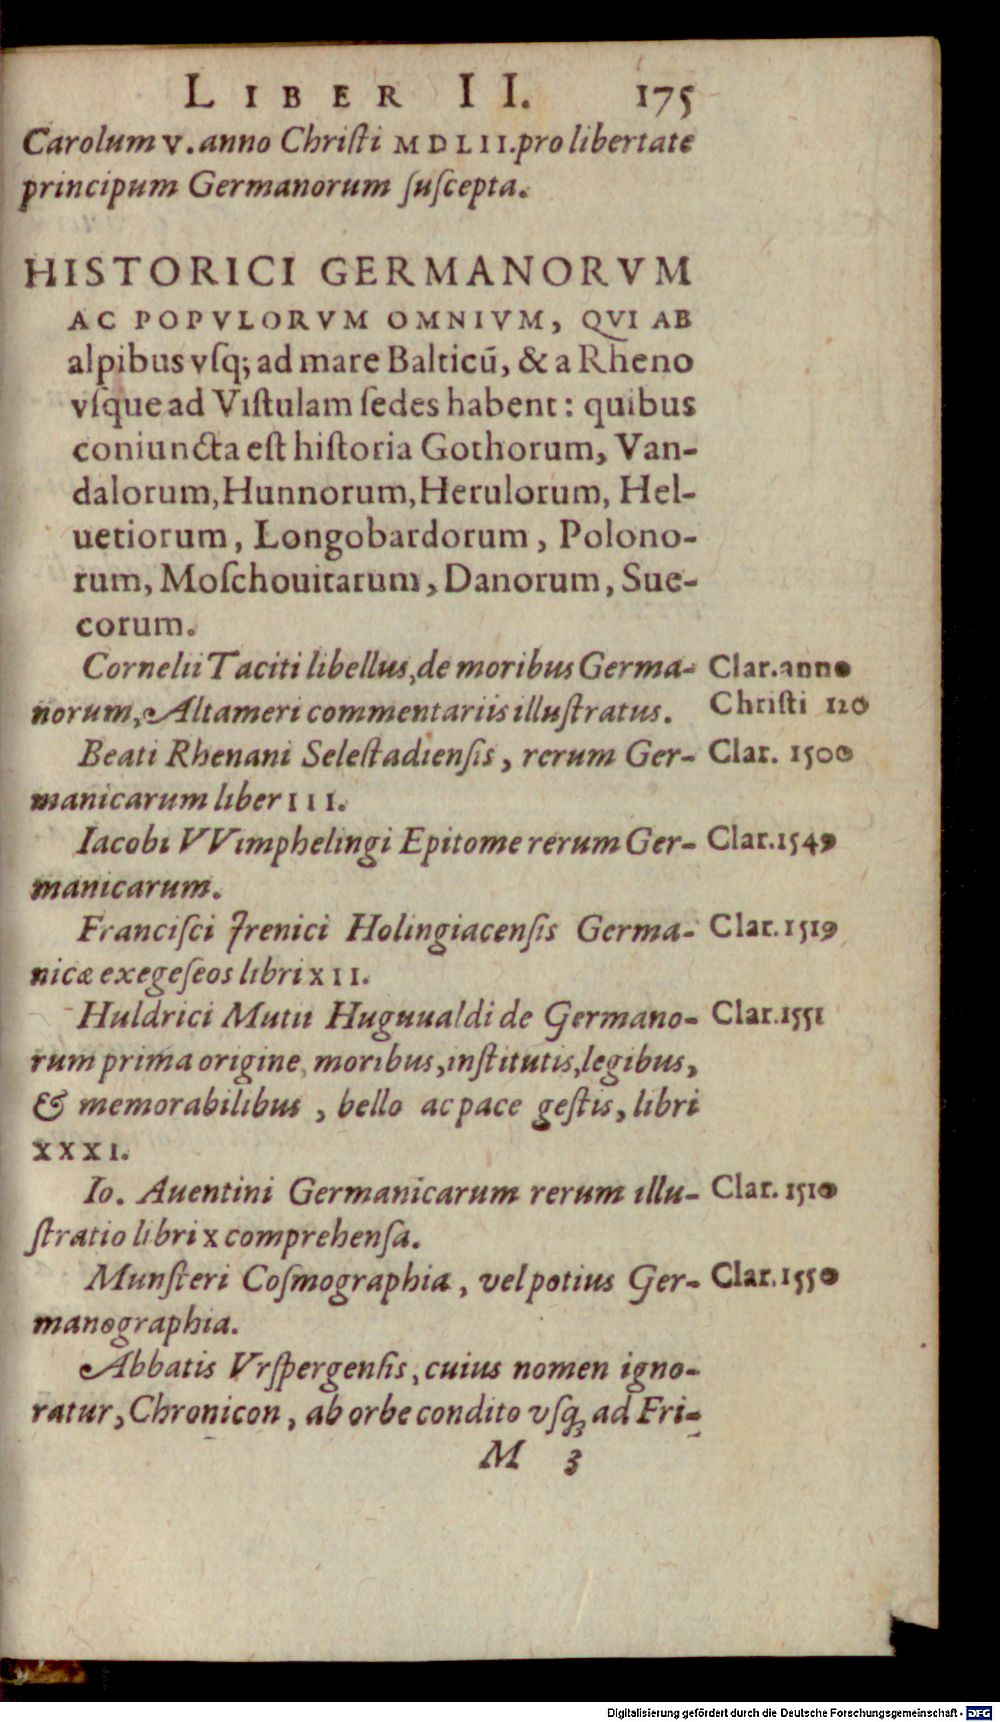 LIBER II. 175
Carolum V. anno Christi MDLII. pro libertate
principum Germanorum ſuſcepta.
HISTORICI GERMANORVM
AC POPVLORVM OMNIVM, QVI AB
alpibus vſq; ad mare Balticū, & a Rheno
vſque ad Viſtulam ſedes habent: quibus
coniuncta eſt hiſtoria Gothorum, Van-
dalorum, Hunnorum, Herulorum, Hel-
uetiorum, Longobardorum, Polono-
rum, Moſchouitarum, Danorum, Sue-
corum.
Cornelii Taciti libellus, de moribus Germa- Clar. anno
norum, Altameri commentariis illuſtratus. Chriſti 120
Beati Rhenani Seleſtadienſis, rerum Ger- Clar. 1500
manicarum liber III.
Iacobi VVimphelingi Epitome rerum Ger- Clar. 1549
manicarum.
Franciſci Irenici Holingiacenſis Germa- Clar. 1519
nicæ exegeſeos libri XII.
Huldrici Mutii Huguualdi de Germano- Clar. 1551
rum prima origine, moribus, inſtitutis, legibus,
& memorabilibus, bello ac pace geſtis, libri
XXXI.
Io. Auentini Germanicarum rerum illu- Clar. 1510
ſtratio libri x comprehenſa.
Munſteri Coſmographia, vel potius Ger- Clar. 1550
manographia.
Abbatis Vrſpergenſis, cuius nomen igno-
ratur, Chronicon, ab orbe condito vſq; ad Fri-
M 3
Digitalisierung gefördert durch die Deutsche Forschungsgemeinschaft - DFG